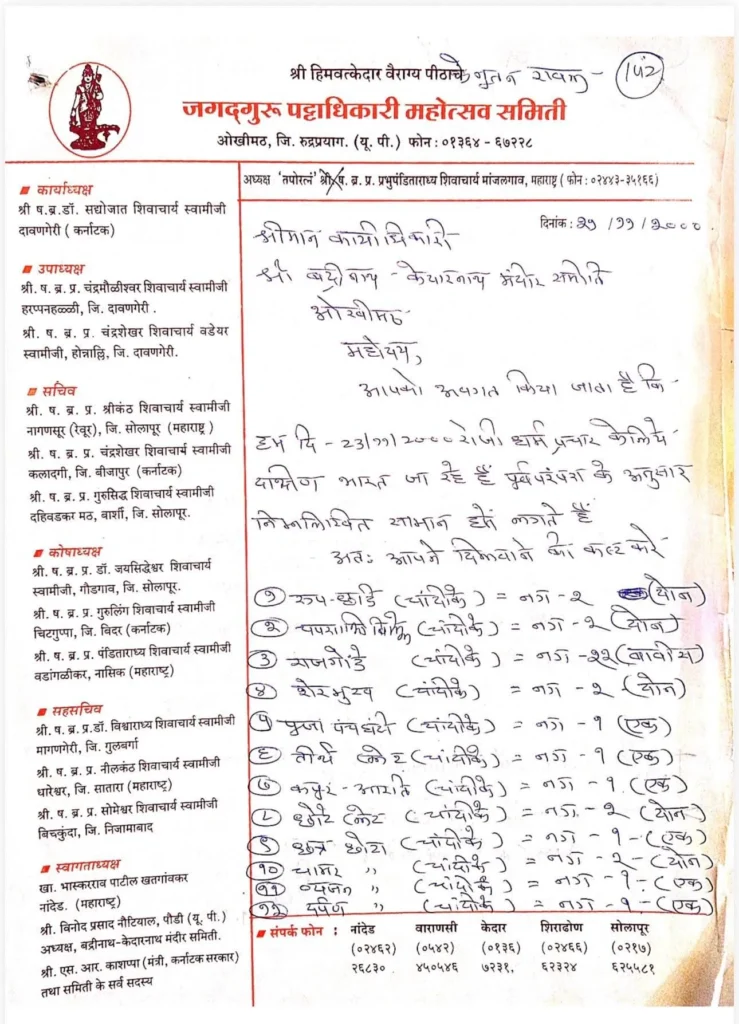 श्री हिमवत्केदार वैराग्य पीठाचे नुतन रावल - 142
जगद्‌गुरु पट्टाधिकारी महोत्सव समिती
ओखीमठ, जि. रुद्रप्रयाग. (यू. पी.) फोन : ०१३६४ - ६७२२८
अध्यक्ष 'तपोरत्नं' श्री. ष. ब्र. प्र. प्रभुपंडिताराध्य शिवाचार्य मांजलगाव, महाराष्ट्र ( फोन : ०२४४३-३५१६६)
कार्याध्यक्ष
श्री ष.ब्र.डॉ. सद्योजात शिवाचार्य स्वामीजी
दावणगेरी ( कर्नाटक)
उपाध्यक्ष
श्री. ष. ब्र. प्र. चंद्रमौळीश्वर शिवाचार्य स्वामीजी
हरप्पनहळ्ळी, जि. दावणगेरी .
श्री. ष. ब्र. प्र. चंद्रशेखर शिवाचार्य वडेयर
स्वामीजी, होन्नाल्लि, जि. दावणगेरी.
सचिव
श्री. ष. ब्र. प्र. श्रीकंठ शिवाचार्य स्वामीजी
नागणसूर (रेवूर), जि. सोलापूर (महाराष्ट्र )
श्री. ष. ब्र. प्र. चंद्रशेखर शिवाचार्य स्वामीजी
कलादगी, जि. बीजापुर (कर्नाटक)
श्री. ष. ब्र. प्र. गुरुसिद्ध शिवाचार्य स्वामीजी
दहिवडकर मठ, बार्शी, जि. सोलापूर.
कोषाध्यक्ष
श्री. ष. ब्र. प्र. डॉ. जयसिद्धेश्वर शिवाचार्य
स्वामीजी, गौडगाव, जि. सोलापूर.
श्री. ष. ब्र. प्र. गुरुलिंग शिवाचार्य स्वामीजी
चिटगुप्पा, जि. बिदर (कर्नाटक)
श्री. ष. ब्र. प्र. पंडिताराध्य शिवाचार्य स्वामीजी
वडांगळीकर, नासिक (महाराष्ट्र)
सहसचिव
श्री. ष. ब्र. प्र.डॉ. विश्वाराध्य शिवाचार्य स्वामीजी
मागणगेरी, जि. गुलबर्गा
श्री. ष. ब्र. प्र. नीलकंठ शिवाचार्य स्वामीजी
धारेश्वर, जि. सातारा (महाराष्ट्र)
श्री. ष. ब्र. प्र. सोमेश्वर शिवाचार्य स्वामीजी
बिच्कुंदा, जि. निजामाबाद
स्वागताध्यक्ष
खा. भास्करराव पाटील खतगांवकर
नांदेड. (महाराष्ट्र)
श्री. विनोद प्रसाद नौटियाल, पौडी (यू. पी.)
अध्यक्ष, बद्रीनाथ-केदारनाथ मंदीर समिती.
श्री. एस. आर. काशप्पा (मंत्री, कर्नाटक सरकार)
तथा समिती के सर्व सदस्य
दिनांक : २१ / ११ / २०००
श्रीमान कार्याधिकारी
श्री बद्रीनाथ - केदारनाथ मंदीर समिति
ओखीमठ
महोदय,
आपको अवगत किया जाता है कि
हम दि - २३/११/२००० रोजी धर्म प्रचार केलिये
दक्षिण भारत जा रहे हैं पूर्वपरंपरा के अनुसार
निम्नलिखित सामान हमें लगते हैं
अतः आपने दिलवाने की कष्ट करे
१ रुप-छडि (चांदीके) = नग - २ (दोन)
२ (चांदीके) = नग - २ (दोन)
३ राजगोंडे (चांदीके) = नग - २२ (बावीस)
४ शेरमुख (चांदीके) = नग - २ (दोन)
५ पूजा पंचघंटी (चांदीके) = नग - १ (एक)
६ तीर्थ प्लेट (चांदीके) = नग - १ (एक)
७ कपूर-आरति (चांदीके) = नग - १ (एक)
८ छोटे प्लेट (चांदीके) = नग - २ (दोन)
९ छत्र छोटा (चांदीके) = नग - १ - (एक)
१० चामर " (चांदीके) = नग - २ - (दोन)
११ व्यजन " (चांदीके) = नग - १ - (एक)
१२ दर्पण " (चांदीके) = नग - १ - (एक)
संपर्क फोन : नांदेड वाराणसी केदार शिराढोण सोलापूर
(०२४६२) (०५४२) (०१३६) (०२४६६) (०२१७)
२६८३० ४५०५४६ ७२३१, ६२३२४ ६२५५८१